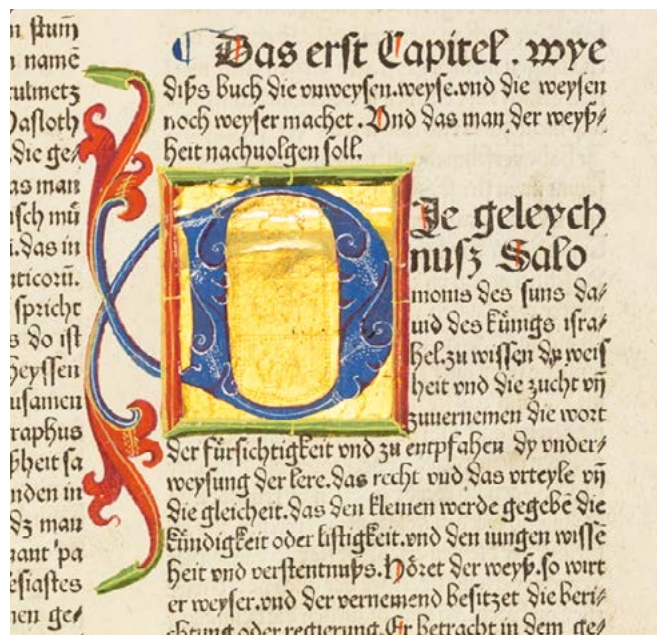 n stum̄
n namē
ulmetz
Dasloth
.die ge/
as man
isch mü
.das in
nticorū.
spricht
s do ist
heyssen
usamen
raphus
ßheit sa
nden in
dz man
nant pa
esiastes
nen ge/
Das erst Capitel. wye
diſs buch die vnweysen.weyse.vnd die weysen
noch weyser machet. Vnd das man der weyß/
heit nachuolgen soll.
DJe geleych
nusz Salo
monis des suns da/
uid des künigs isra/
hel.zu wissen dy weis
heit vnd die zucht vn̄
zuuernemen die wort
der fürsichtigkeit vnd zu entpfahen dy vnder/
weysung der lere.das recht vnd das vrteyle vn̄
die gleicheit.das den kleinen werde gegebē die
kündigkeit oder listigkeit.vnd den iungen wissē
heit vnd verstentnuſs. Höret der weyß.so wirt
er weyser.vnd der vernemend besitzet die beri/
chtung oder regierung.Er betracht in dem ge/